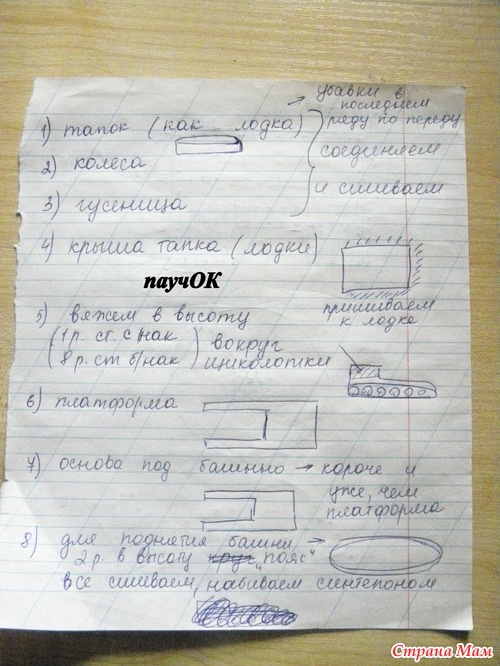 → убавки в
последнем
1) тапок (как лодка) } ряду по переду
соединяем
2) колеса
и сшиваем
3) гусеница
4) крыша тапка (лодки)
паучОК
пришиваем
к лодке
5) вяжем в высоту
(1 р. ст. с нак
8 р. ст б/нак) вокруг
щиколотки
6) платформа
7) основа под башню → короче и
уже, чем
платформа
8) для поднятия башни →
2 р в высоту "пояс"
все сшиваем, набиваем синтепоном
Страна Мам